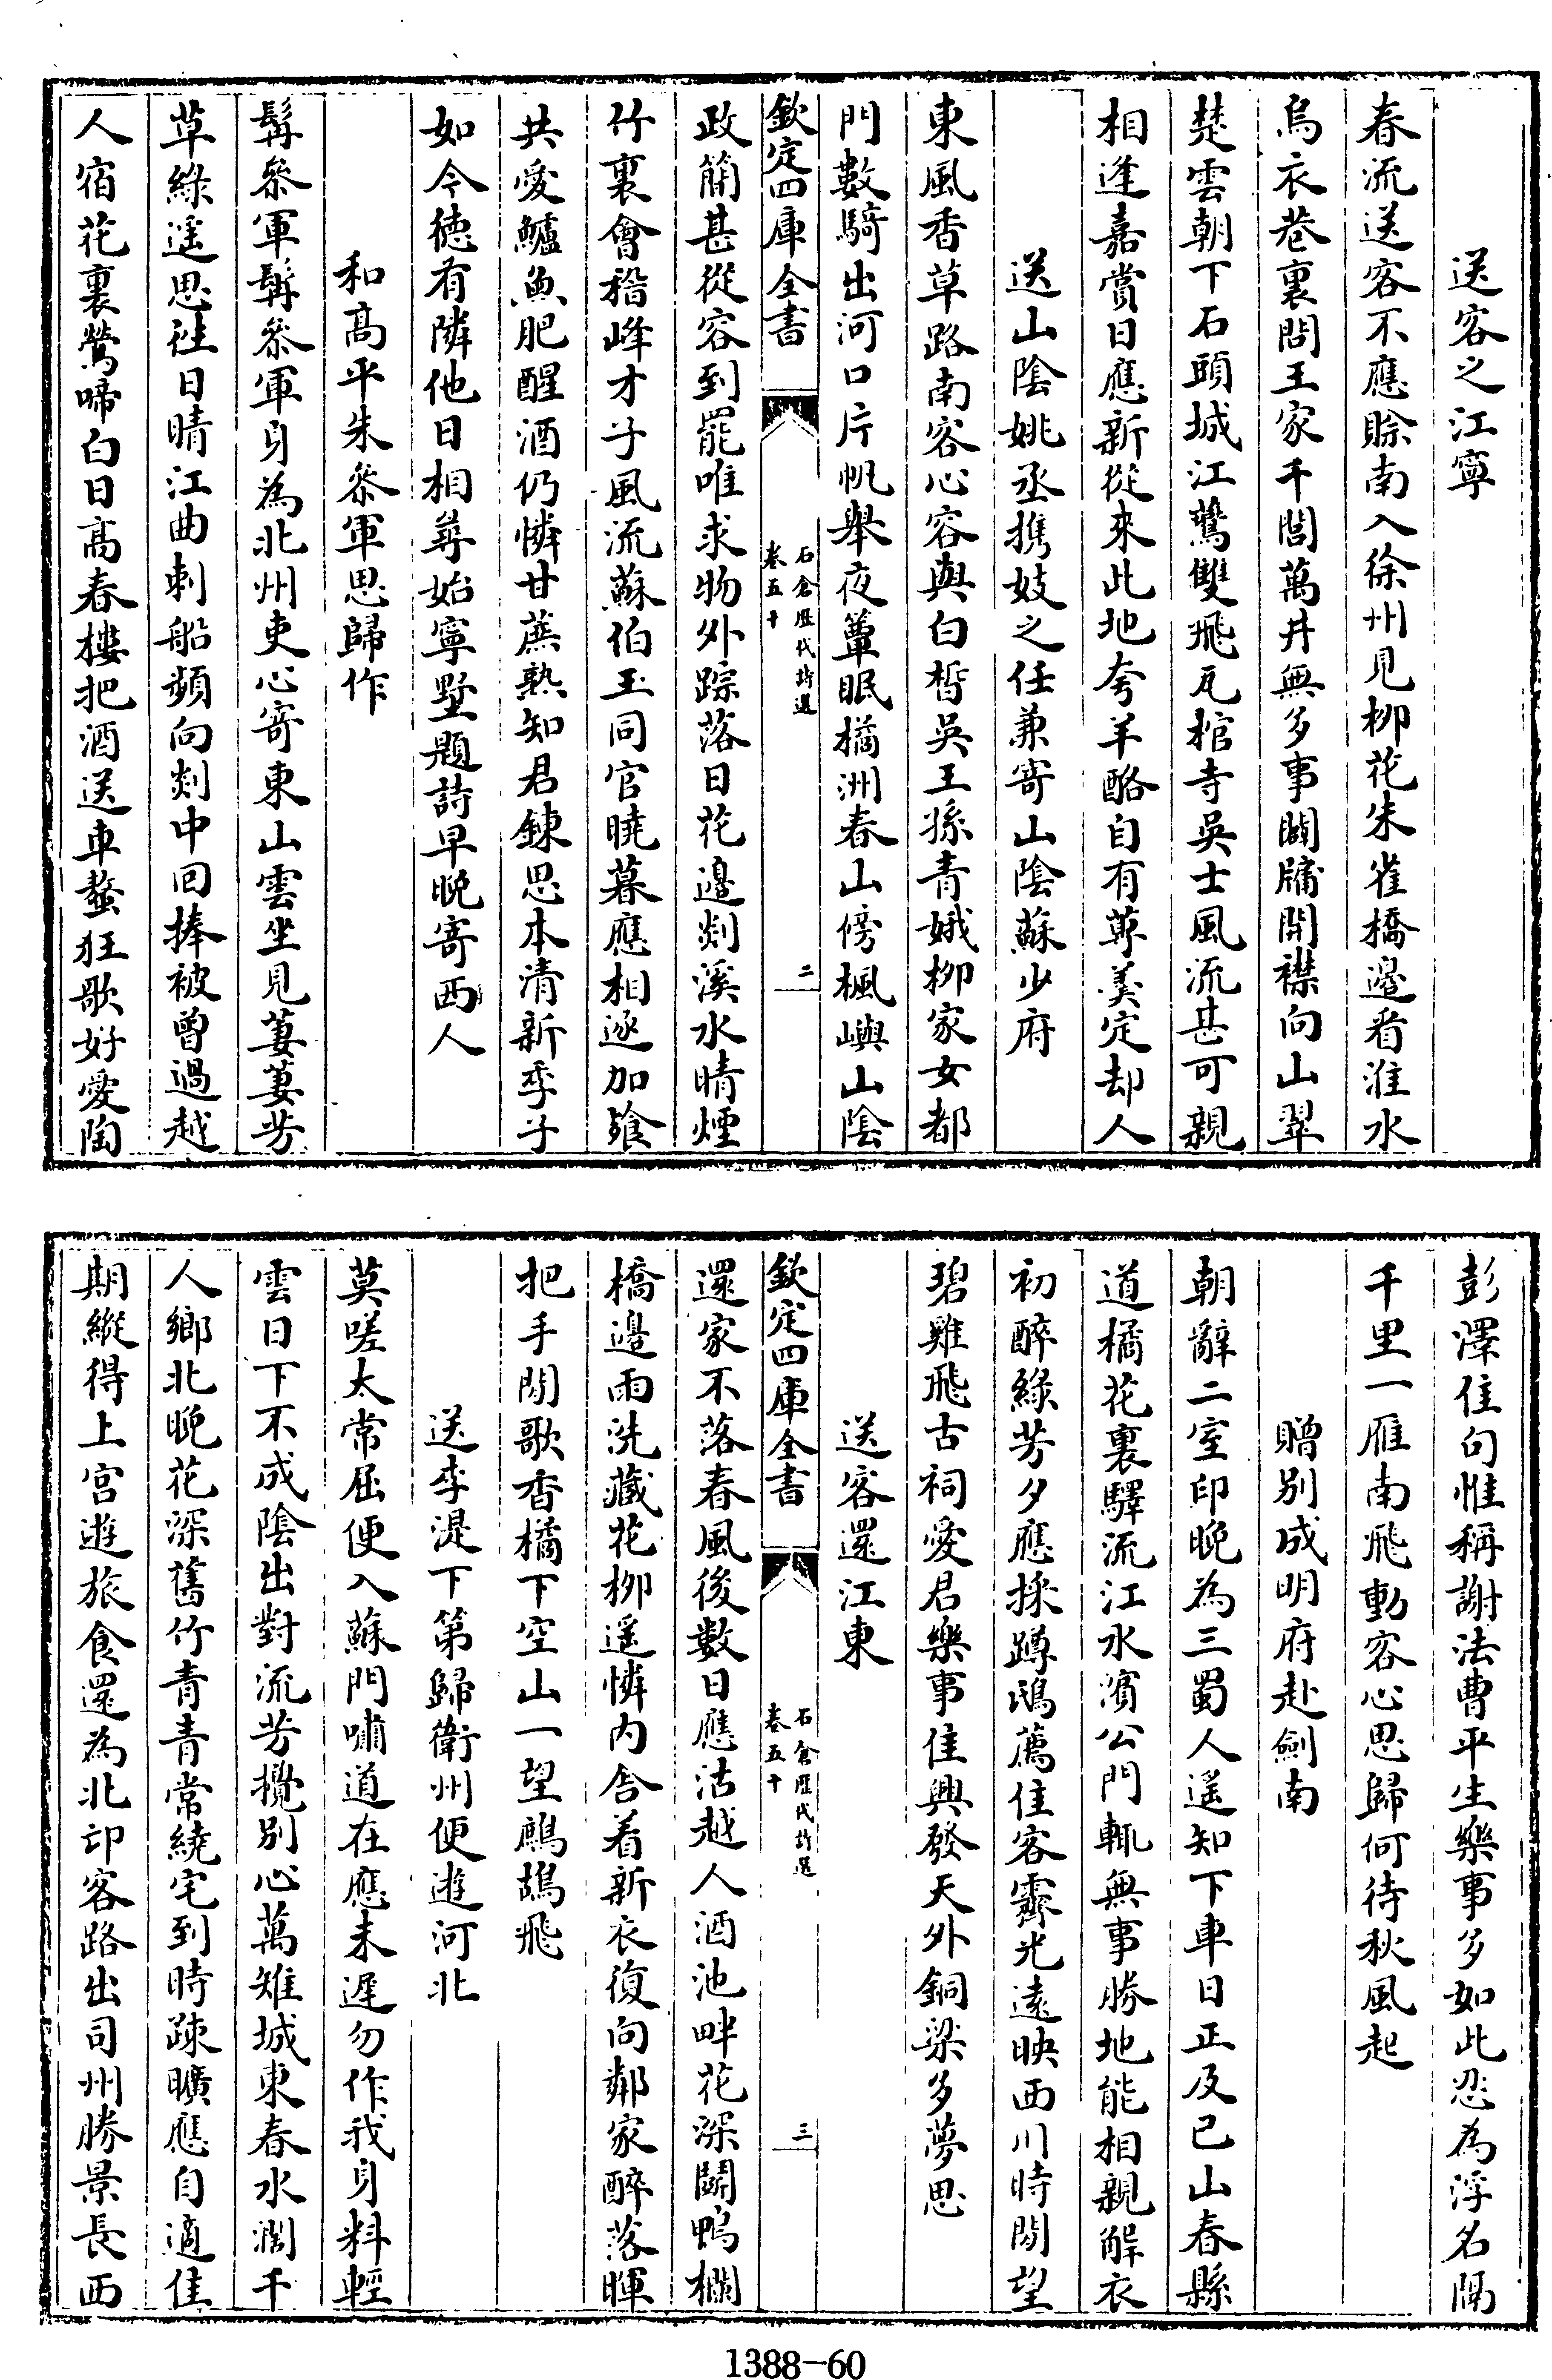 送客之江寧
春流送客不應賒南入徐州見柳花朱雀橋邊看淮水
烏衣巷裏問王家千閭萬井無多事闢牖開襟向山翠
楚雲朝下石頭城江鷰雙飛瓦棺寺吳士風流甚可親
相逢嘉賞日應新從來此地夸羊酪自有蓴羹定却人
送山陰姚丞携妓之任兼寄山陰蘇少府
東風香草路南客心容與白皙吳王孫青娥柳家女都
門數騎出河口片帆舉夜簟眠橘洲春山傍楓嶼山陰
欽定四庫全書
石倉歷代詩選
卷五十
二
政簡甚從容到罷唯求物外踪落日花邊剡溪水晴煙
竹裏會稽峰才子風流蘇伯玉同官曉暮應相逐加飱
共愛鱸魚肥醒酒仍憐甘蔗熟知君錬思本清新季子
如今德有隣他日相尋始寧墅題詩早晚寄西人
和髙平朱叅軍思歸作
髯叅軍髯叅軍身為北州吏心寄東山雲坐見萋萋芳
草綠遥思往日晴江曲刺船頻向剡中回捧被曾過越
人宿花裏鶯啼白日髙春樓把酒送車螯狂歌好愛陶
彭澤佳句惟稱謝法曹平生樂事多如此忍為浮名隔
千里一雁南飛動客心思歸何待秋風起
贈別成明府赴劍南
朝辭二室印晚為三蜀人遥知下車日正及巳山春縣
道橘花裏驛流江水濱公門輒無事勝地能相親解衣
初醉綠芳夕應採蹲鴟薦佳客霽光遠映西川時閒望
碧雞飛古祠愛君樂事佳興發天外銅梁多夢思
送客還江東
欽定四庫全書
石倉歷代詩選
卷五十
三
還家不落春風後數日應沽越人酒池畔花深鬭鴨欄
橋邊雨洗藏花柳遥憐內舍着新衣復向鄰家醉落暉
把手閒歌香橘下空山一望鷓鴣飛
送李湜下第歸衛州便遊河北
莫嗟太常屈便入蘇門嘯道在應未遲勿作我身料輕
雲日下不成陰出對流芳攪別心萬雉城東春水濶千
人鄉北晚花深舊竹青青常繞宅到時疎曠應自適佳
期縱得上宮遊旅食還為北卭客路出司州勝景長西
1388-60